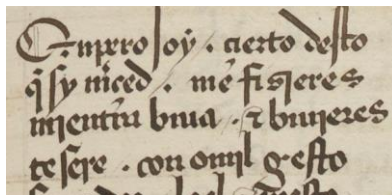 C. nprro soy. cierto desto
q̃ sy mc̃ed. me fizieres
mientra biua. ⁊ biuieres
te sere. con omil gesto